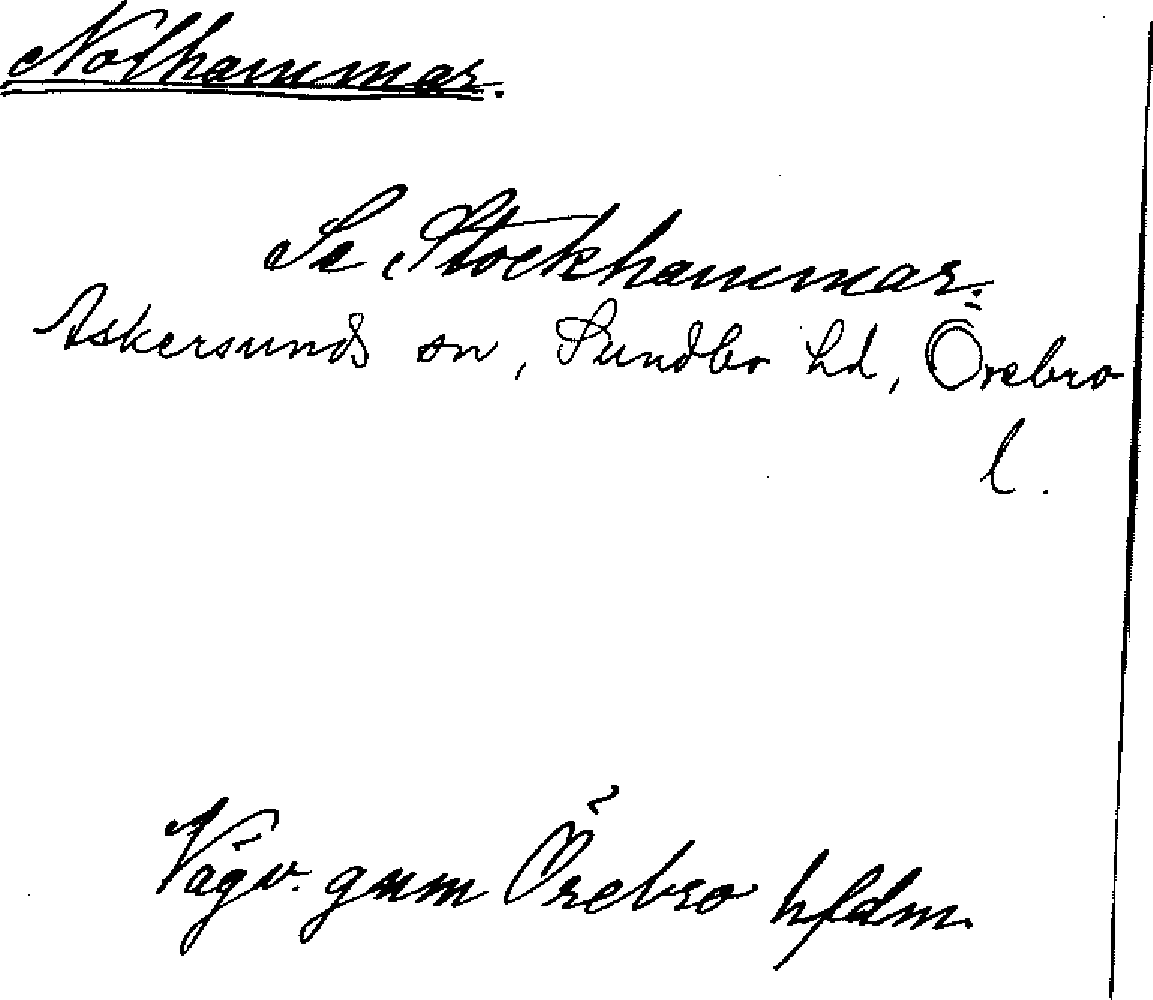 Nolhammar.
Se Stockhammar.
Askersunds sn, Sundbo hd, Örebro
l.
Vägv. gnm Örebro hfdm.